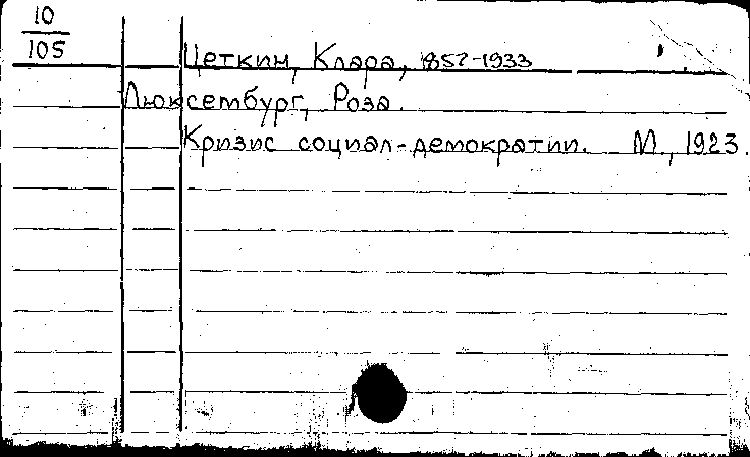 10
105
Цеткин, Клара, 1857-1933
Люксембург, Роза.
Кризис социал-демократии. М., 1923.